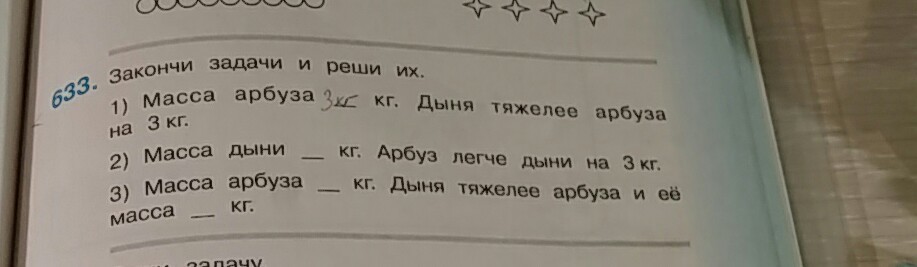 633. Закончи задачи и реши их.
1) Масса арбуза 3кг кг. Дыня тяжелее арбуза
на 3 кг.
2) Масса дыни __ кг. Арбуз легче дыни на 3 кг.
3) Масса арбуза __ кг. Дыня тяжелее арбуза и её
масса __ кг.
задачу